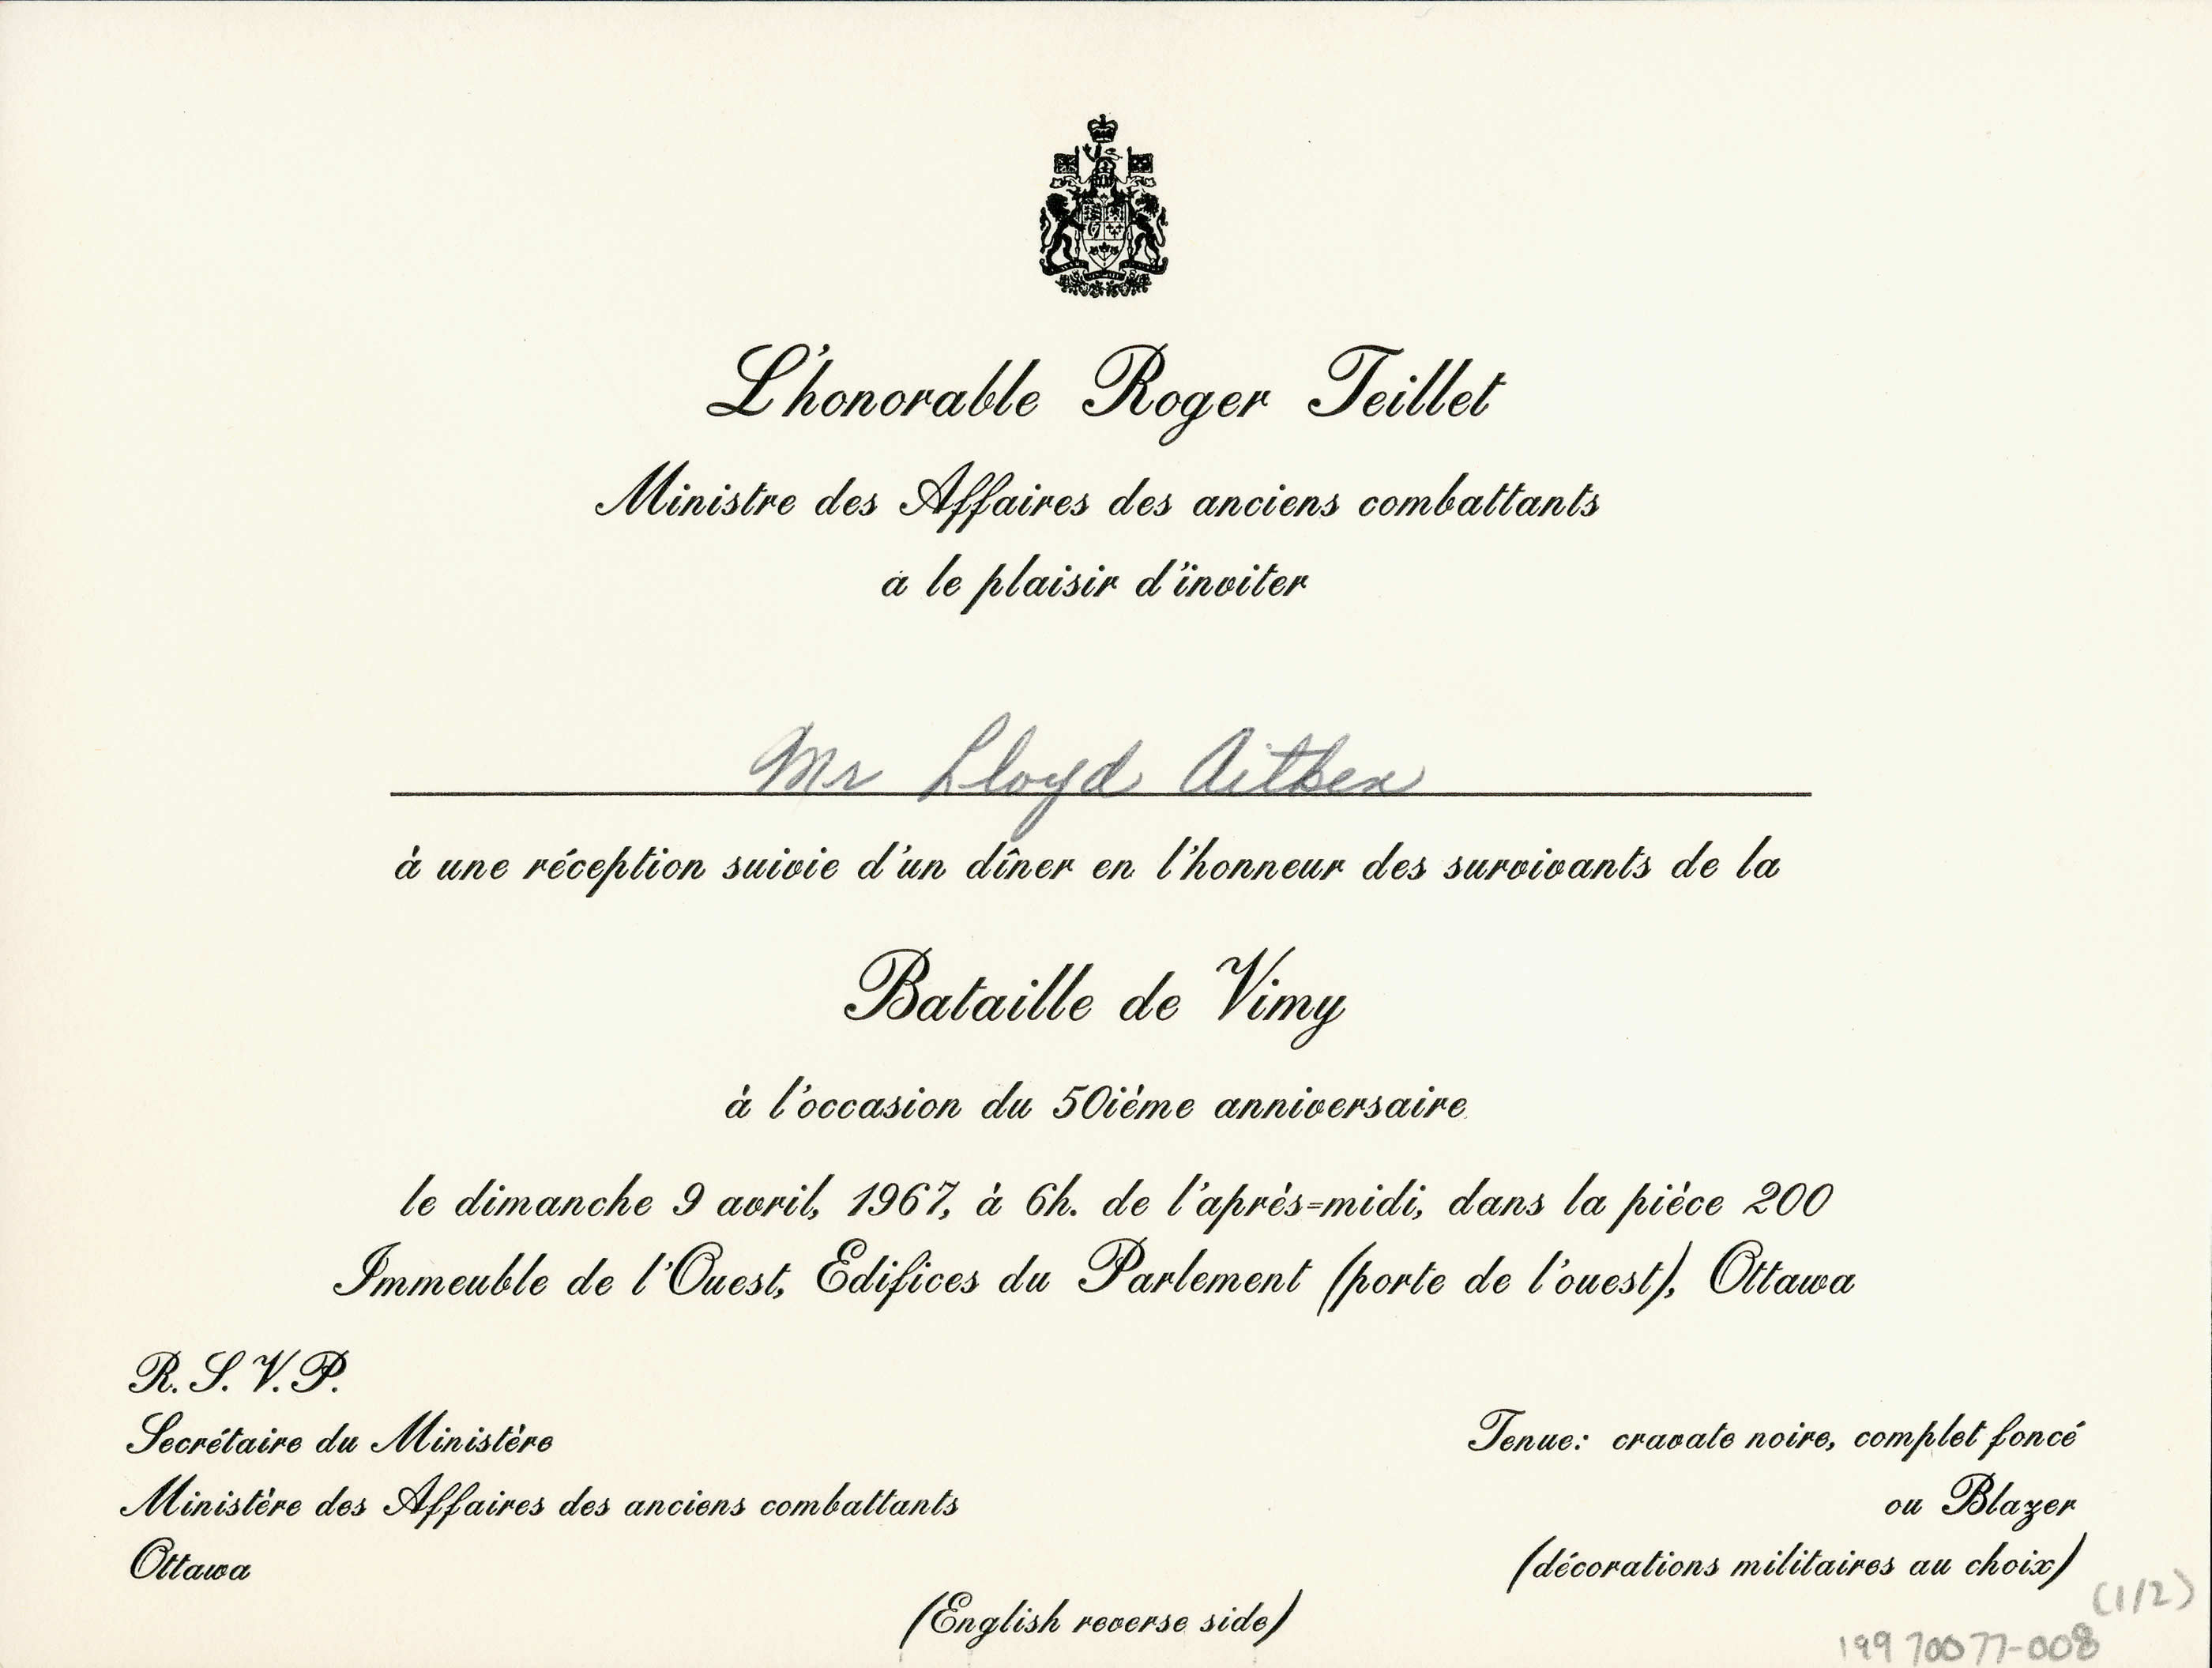 L'honorable Roger Teillet
Ministre des Affaires des anciens combattants
a le plaisir d'inviter
Mr Lloyd Aitken
à une réception suivie d'un dîner en l'honneur des survivants de la
Bataille de Vimy
à l'occasion du 50ième anniversaire
le dimanche 9 avril, 1967, à 6h. de l'après-midi, dans la pièce 200
Immeuble de l'Ouest, Edifices du Parlement (porte de l'ouest), Ottawa
R. S. V. P.
Secrétaire du Ministère
Ministère des Affaires des anciens combattants
Ottawa
Tenue: cravate noire, complet foncé
ou Blazer
(décorations militaires au choix)
(English reverse side)
(1/2)
19970077-008